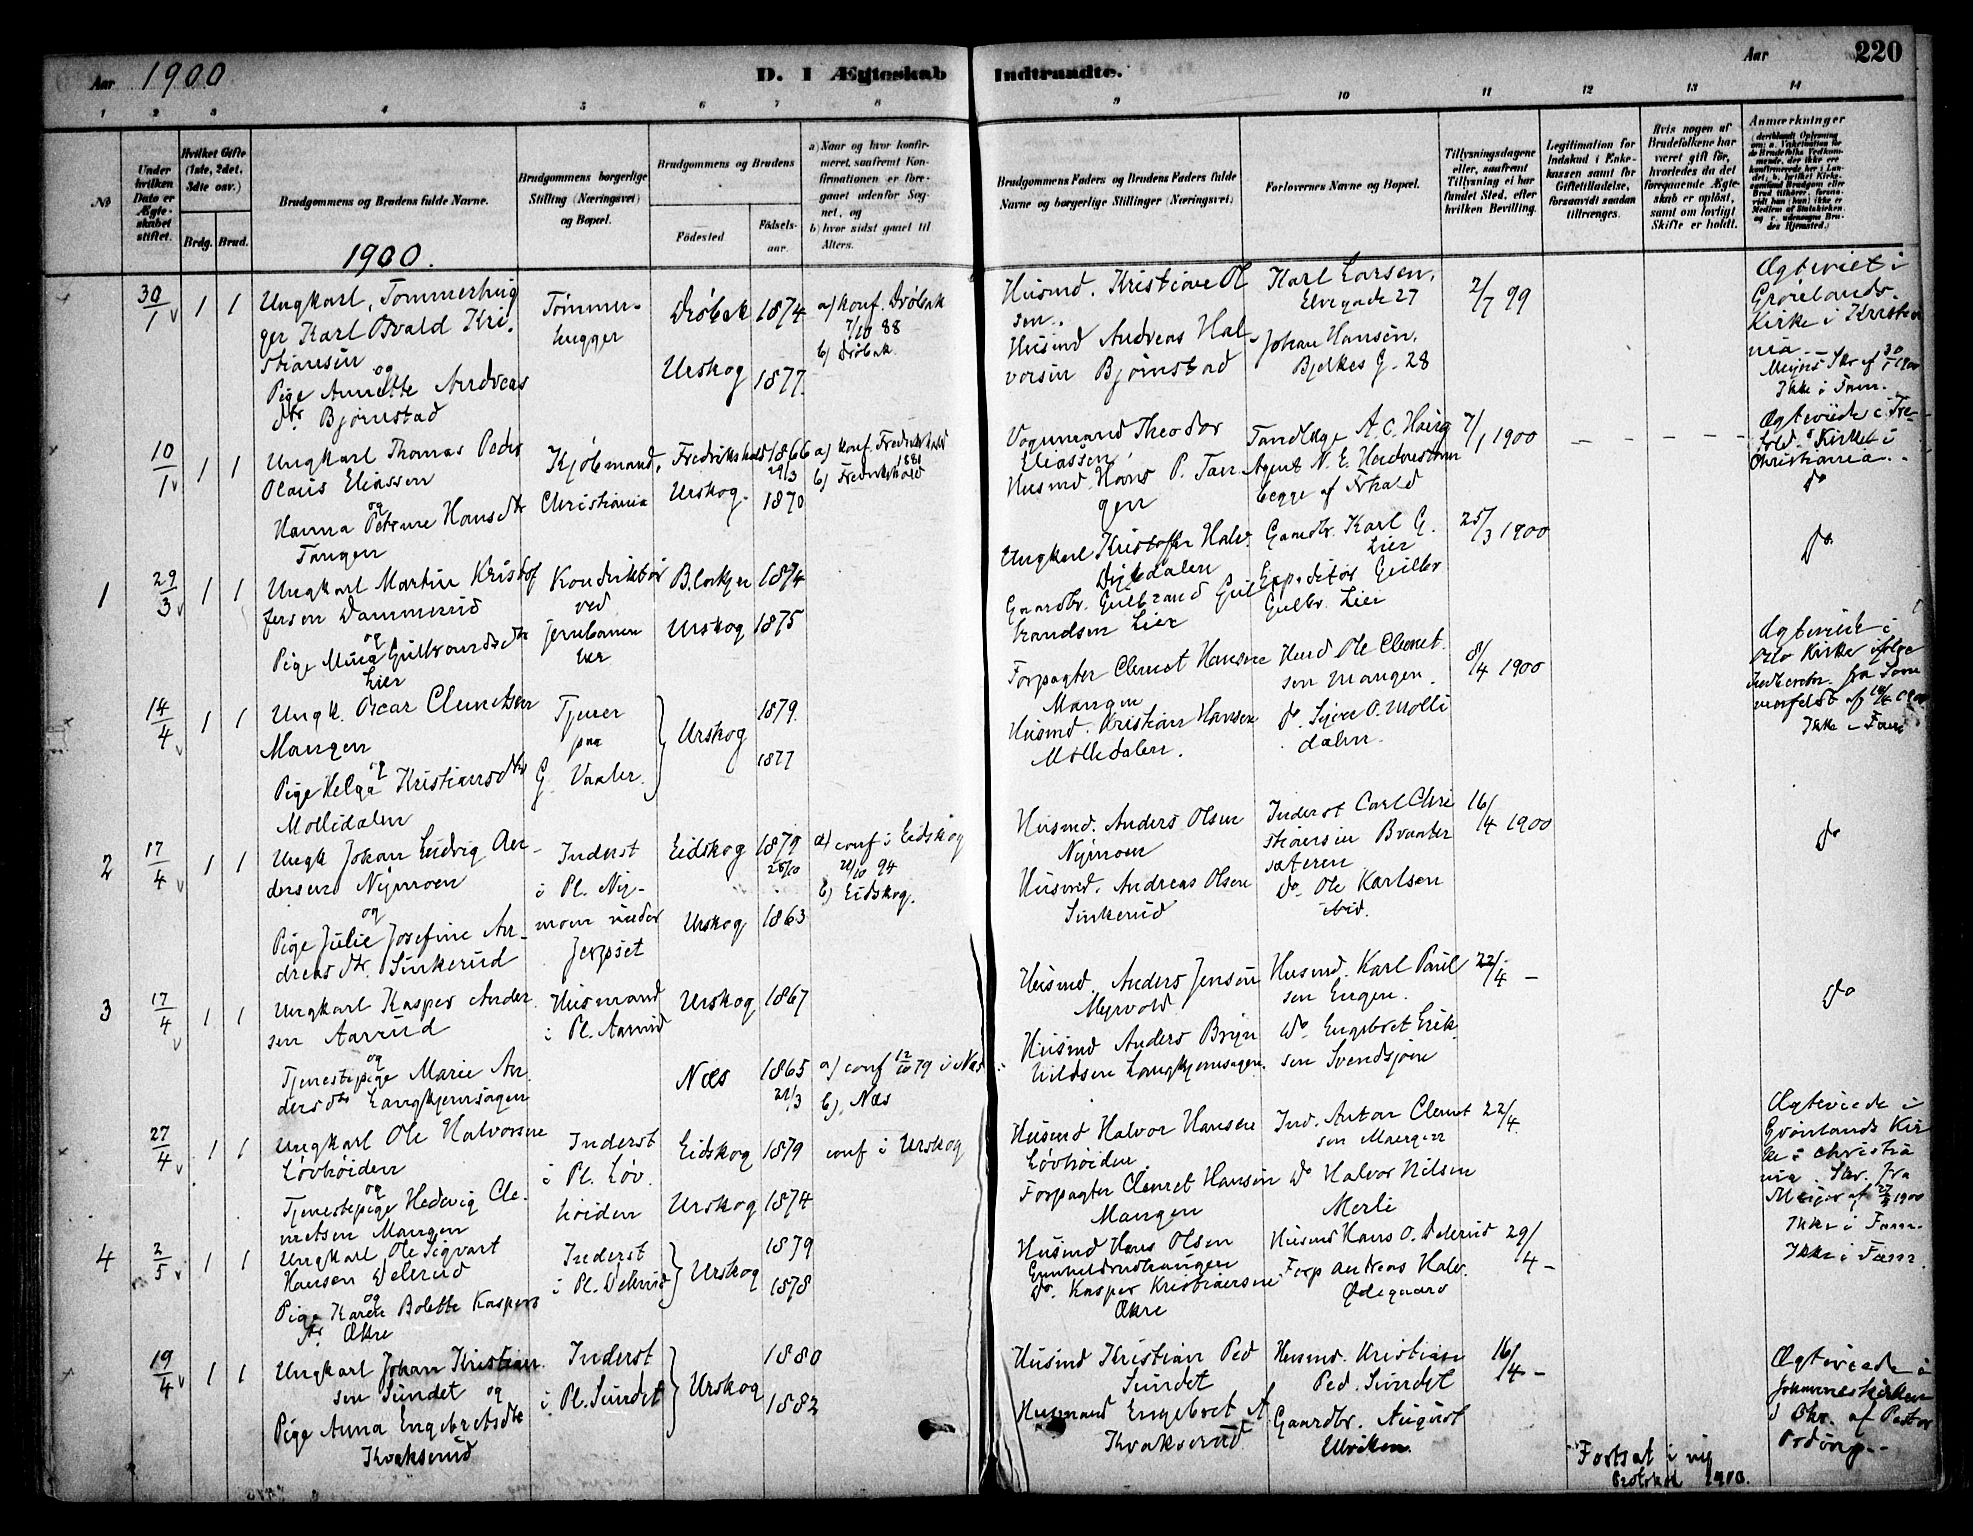 Aar 1900
D. I Ægteskab
Indtraadte.
Aar
220
1 2 3 4 5 6 7 8
9 10 11 12 13 14
No
Under hvilken Dato er Ægteskabet stiftet.
Hvilket Gifte (1ste, 2det, 3die osv.)
Brdg. Brud.
Brudgommens og Brudens fulde Navne.
Brudgommens borgerlige Stilling (Næringsvei) og Bopæl.
Brudgommens og Brudens
Fødested
Fødselsaar.
a) Naar og hvor konfirmeret, saafremt Konfirmationen er foregaaet udenfor Sognet, og
b) hvor sidst gaaet til Alters.
Brudgommens Faders og Brudens Faders fulde Navne og borgerlige Stillinger (Næringsvei)
Forlovernes Navne og Bopæl.
Tillysningsdagene eller, saafremt Tillysning ei har fundet Sted, efter hvilken Bevilling.
Legitimation for Indskud i Enkekassen samt for Giftetilladelse, forsaavidt saadan tiltrænges.
Hvis nogen af Brudefolkene har været gift før, hvorledes da det foregaaende Ægteskab er opløst, samt om lovligt Skifte er holdt.
Anmærkninger
1900.
30/1 1 1
Ungkarl, Tømmerhug
ger Karl Osvald Kri
stiansen
og
Pige Annette Andreas
dtr. Bjørnstad
Tømmer
hugger
Drøbak 1874
Urskog 1877.
a) Konf. Drøbak
7/10 88
b) Drøbak.
Husmd. Kristiane Ol
sen.
Husmd Andreas Hal
vorsen Bjørnstad
Karl Larsen,
Elvegade 27
Johan Hansen,
Bjelkes G. 28
2/7 99
Ægteviet i
Grønlands
Kirke i Kristia
nia
Ikke i Fam.
10/1 1 1
Ungkarl Thomas Peder
Olaus Eliassen
og
Hanna Petrine Hansdtr
Tangen
Kjøbmand,
Christiania
Fredrikshald 1866
29/3
Urskog. 1870
a) Konf. Fredrikshald
1881
b) Fredrikshald
Vognmand Theodor
Eliassen
Husmd. Hans P. Tan
gen
Tandlæge A. C. Høieg
Agent N. E.
begge af Frhald
7/1 1900
Ægteviede i Tre
fold. Kirke i
Christiania.
do
1 29/3 1 1
Ungkarl Martin Kristof
fersen Dammerud
og
Pige Mina Gulbrandsdtr
Lier
Konduktør
ved
Jernbanen
her
Blakjer 1874
Urskog 1875
Ungkarl Kristoffer Halv.
Digedalen
Gaardbr. Gulbrand Gul
brandsen Lier
Gaardbr. Karl G.
Lier
Expeditør Gulbr
Gulbr. Lier
25/3 1900
do.
14/4 1 1
Ungk. Oscar Clemetsen
Mangen
og
Pige Helga Kristiansdtr
Mollidalen
Tjener
paa
G. Vaaler.
Urskog
1879.
1877
Forpagter Clemet Hansen
Mangen
Husmd. Kristian Hansen
Mollidalen.
Husd Ole Clemet
sen Mangen.
do. Syver O. Molli
dalen.
8/4 1900
Ægteviede i
Oslo Kirke ifølge
Ikke i Fam
2 17/4 1 1
Ungk Johan Ludvig An
dersen Nymoen
og
Pige Julie Josefine An
dreasdtr. Sinkerud
Inderst
i Pl. Ny-
moen under
Jerpset
Eidskog 1879
28/10
Urskog 1863
a) conf i Eidskog
21/10 94
b) Eidskog.
Husmd. Anders Olsen
Nymoen
Husmd. Andreas Olsen
Sinkerud
Inderst Carl Chri
stiansen Braater
sæteren
do. Ole Karlsen
ibid.
16/4 1900
do
3 17/4 1 1
Ungkarl Kasper Ander
sen Aarrud
og
Tjenestepige Marie An
dersdtr Langkjernsagen
Husmand
i Pl. Aarrud
Urskog 1867
Næs 1865
21/3
a) conf 12/10 79 i Næs
b) Næs
Husmd. Anders Jensen
Myrvold
Husmd Anders Bryn
hildsen Langkjernsagen.
Husmd. Karl Paul
sen Engen.
do Engebret Erik
sen Svendsjøen
22/4 -
do
27/4 1 1
Ungkarl Ole Halvorsen
Løvhøiden
og
Tjenestepige Hedevig Cle
metsen Mangen
Inderst
i Pl. Løv
høiden
Eidskog 1879
Urskog 1874
conf i Urskog
Husmd Halvor Hansen
Løvhøiden
Forpagter Clemet Hansen
Mangen
Ind. Anton Clemet
sen Mangen
do Halvor Nilsen
Merli
22/4.
Ægteviede i
Grønlands Kir
ke i Christia
nia. Skr. fra
Ikke i Fam.
4 2/5 1 1
Ungkarl Ole Sigvart
Hansen Delerud
og
Pige Karen Bolette Kaspers
dtr. Økre
Inderst
i Pl. Delerud
Urskog
1879
1878
Husmd Hans Olsen
do. Kasper Kristiansen
Økre
Husmd Hans O. Delerud
Forp Andreas Halv.
Ødegaard
29/4 -
Ikke i Fam.
19/4 1 1
Ungkarl Johan Kristian
sen Sundet og
Pige Anna Engebretsdtr
Kvakserud
Inderst
i Pl. Sundet
Urskog
1880
1882
Husmd Kristian Ped
Sundet
Husmand Engebret A
Kvakserud
Husmd. Kristian
Ped. Sundet
Gaardbr. August
Ulviken.
16/4 -
Ægteviede i
Johanneskirken
af Pastor
Fortsat i ny
Protokol 1900.